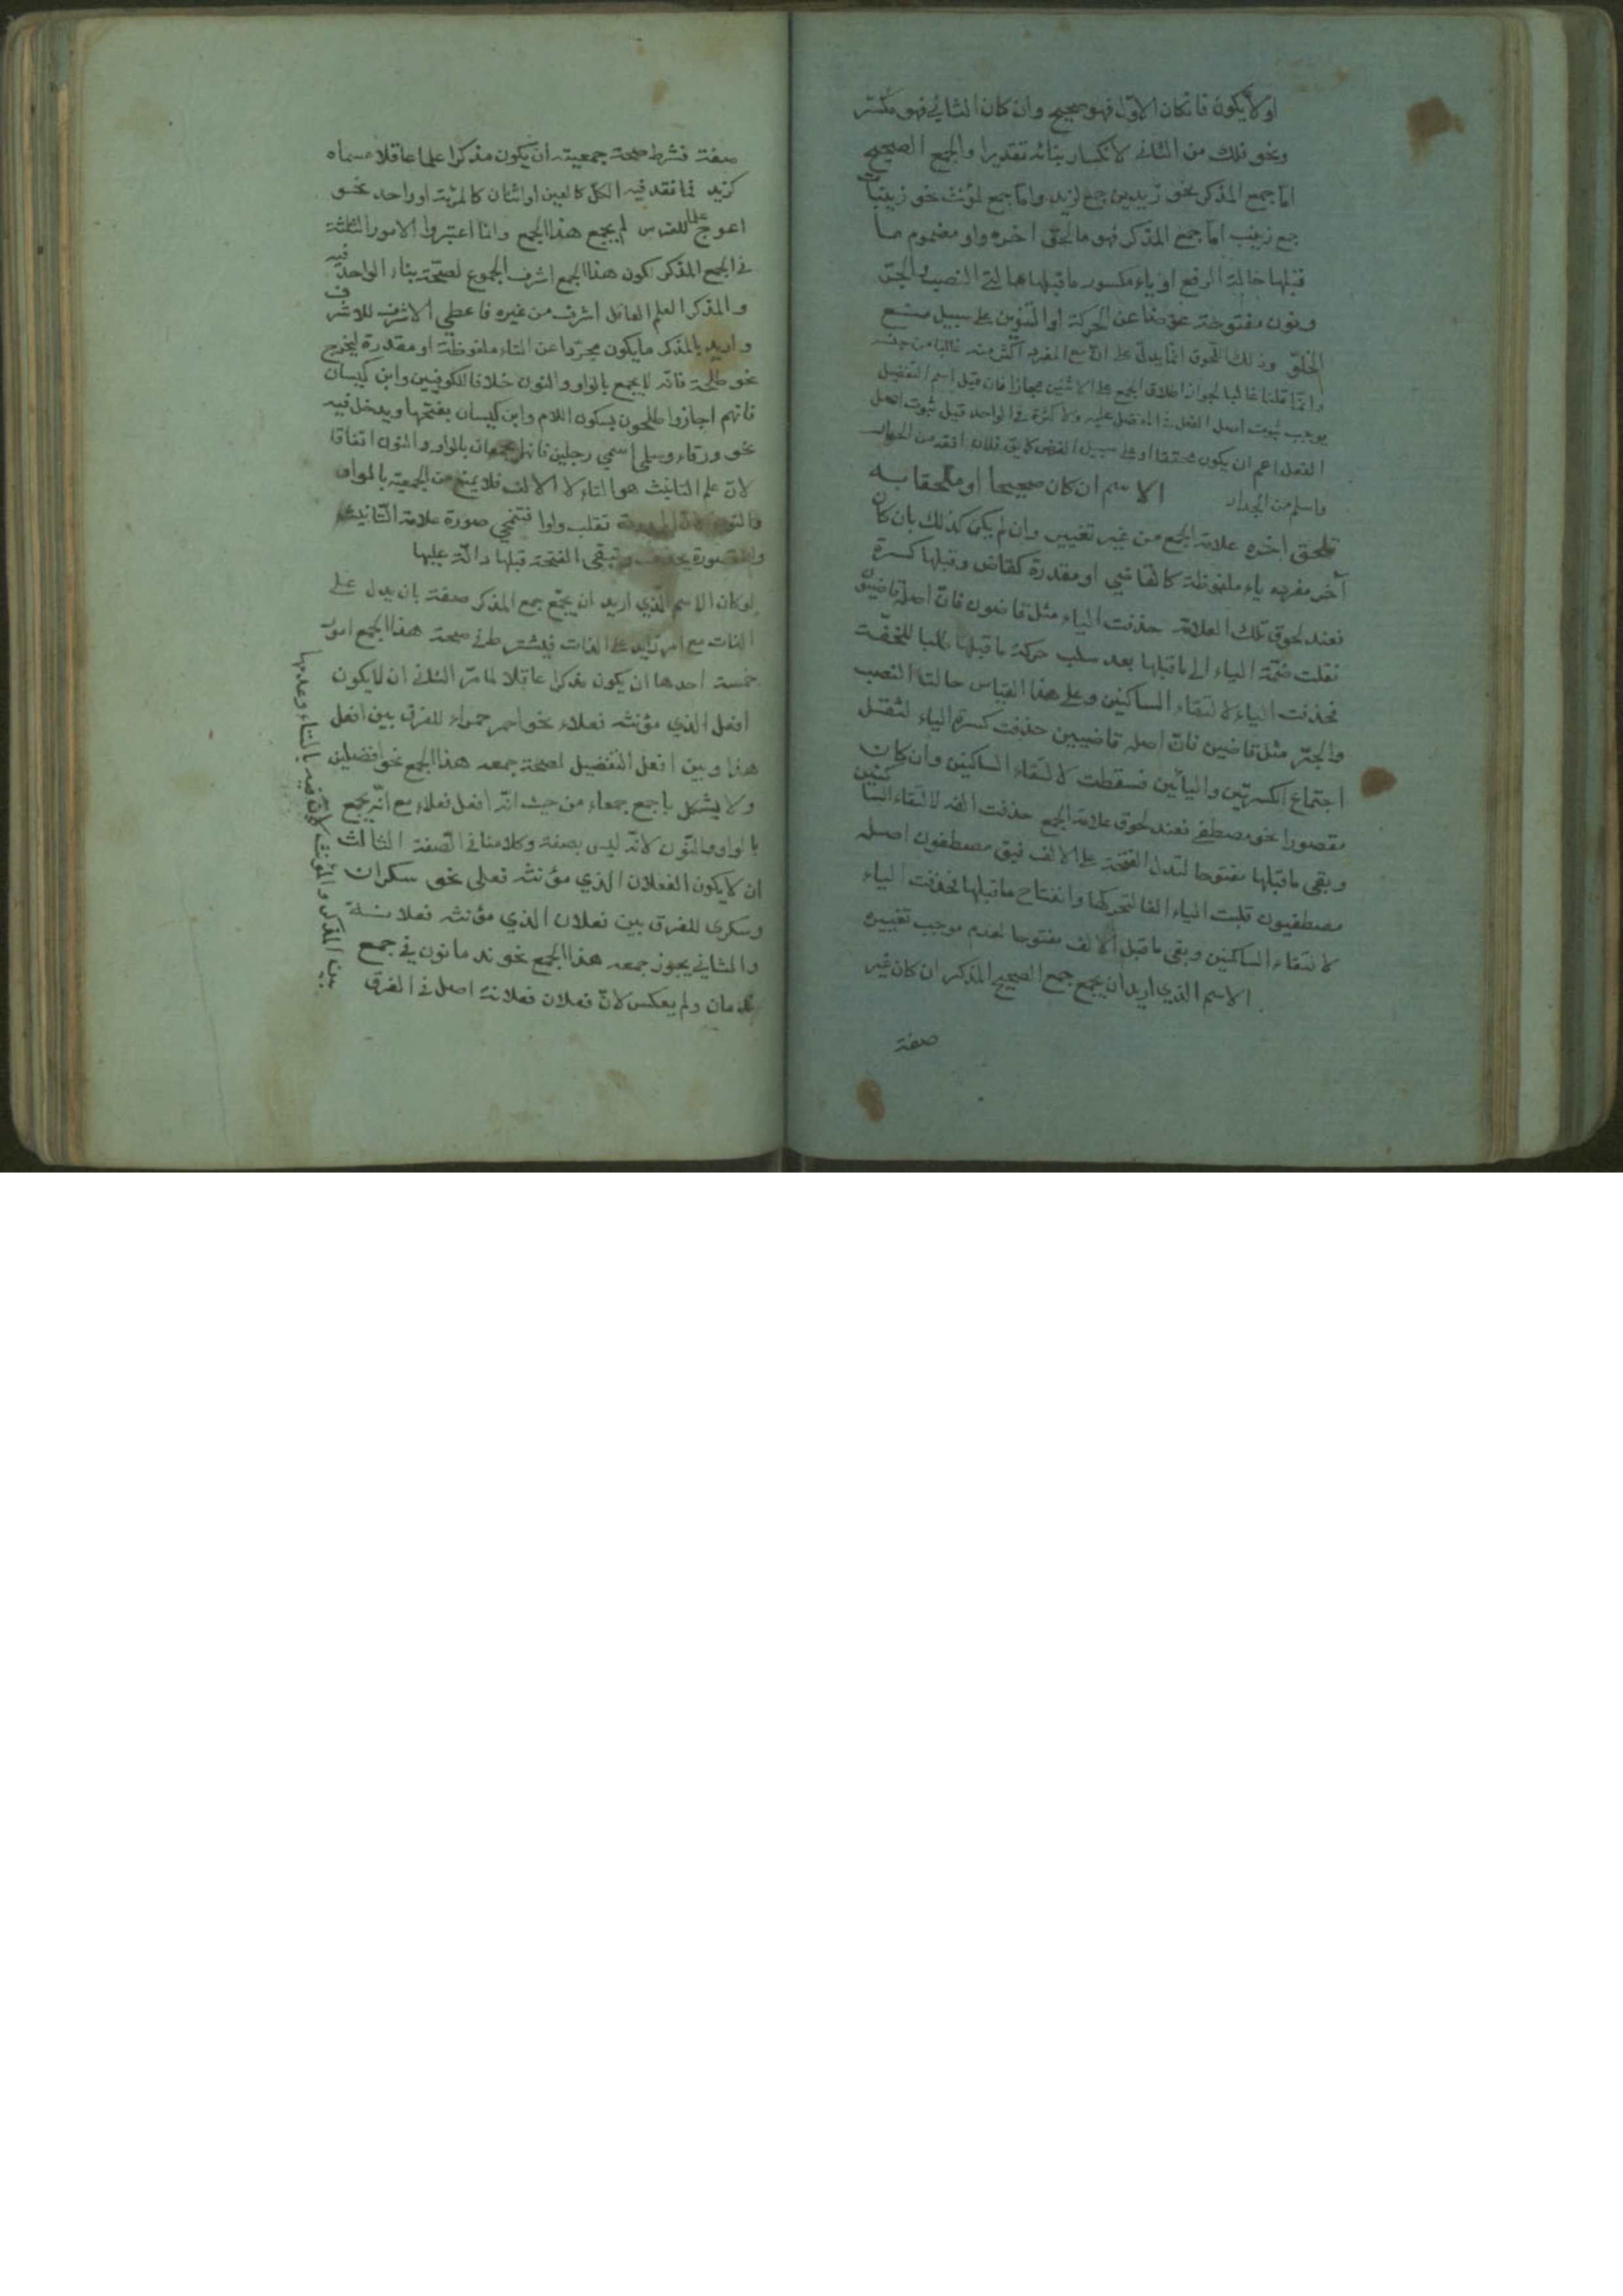 اولا يكون فان كان الاول فهو صحيح وان كان الثاني فهو مكسر
ونحو فلك من الثاني لانكسار بنائه تقديرا والجمع الصحيح
اما جمع المذكر نحو زيدين جمع لزيد واما جمع لمؤنث نحو زينبات
جمع زينب اما جمع المذكر فهو ما لحق اخره واو مضموم ما
قبلها حالة الرفع او ياء مكسور ما قبلها حالتي النصب والجر
ونون مفتوحة عوضا عن الحركة او التنوين على سبيل منع
الخلو وذلك اللحوق انما يدل على ان مع المفرد اكثر منه غالبا من جنسه
وانما قلنا غالبا لجواز اطلاق الجمع على الاثنين مجازا فان قيل اسم التفضيل
يوجب ثبوت اصل الفعل في المفضل عليه ولا كثرة في الواحد قيل ثبوت اصل
الفعل اعم ان يكون محققا او على سبيل الفرض كما يق فلان افقه من الحمار
واسلم من الجدار الاسم ان كان صحيحا او ملحقا به
فلحق اخره علامة الجمع من غير تغيير وان لم يكن كذلك بان كان
آخر مفرده ياء ملفوظة كالقاضي او مقدرة كقاض وقبلها كسرة
فعند لحوق تلك العلامة حذفت الياء مثل قاضون فان اصله قاضيون
نقلت ضمة الياء الى ما قبلها بعد سلب حركة ما قبلها طلبا للخفة
فحذفت الياء لالتقاء الساكنين وعلى هذا القياس حالتا النصب
والجر مثل قاضين فان اصله قاضيين حذفت كسرة الياء لثقل
اجتماع الكسرتين واليائين فسقطت لالتقاء الساكنين وان كان
مقصورا نحو مصطفى فعند لحوق علامة الجمع حذفت الفه لالتقاء الساكنين
وبقى ما قبلها مفتوحا لتدل الفتحة على الالف فيق مصطفون اصله
مصطفيون قلبت الياء الفا لتحركها وانفتاح ما قبلها فحذفت الياء
لالتقاء الساكنين وبقى ما قبل الالف مفتوحا لعدم موجب تغييره
الاسم الذي اريد ان يجمع جمع الصحيح المذكر ان كان غير
صفة
صفة فشرط صحة جمعيته ان يكون مذكرا علما عاقلا مسماه
كزيد فما فقد فيه الكل كالعين او اثنان كالمرئة او واحد نحو
اعوج علما للفرس لم يجمع هذا الجمع وانما اعتبروا الامور الثلثة
في الجمع المذكر لكون هذا الجمع اشرف الجموع لصحة بناء الواحد فيه
والمذكر العلم العاقل اشرف من غيره فاعطي الاشرف للاشرف
واريد بالمذكر ما يكون مجردا عن التاء ملفوظة او مقدرة ليخرج
نحو طلحة فانه لا يجمع بالواو والنون خلافا للكوفيين وابن كيسان
فانهم اجازوا طلحون بسكون اللام وابن كيسان بفتحها ويدخل فيه
نحو ورقاء وسلمى اسمي رجلين فانهما يجمعان بالواو والنون اتفاقا
لان علم التانيث هو التاء لا الالف فلا يمنع من الجمعية بالواو
والنون لان الممدودة تقلب واوا فتنمحي صورة علامة التانيث
والمقصورة يحذف وتبقى الفتحة قبلها دالة عليها
لو كان الاسم الذي اريد ان يجمع جمع المذكر صفة بان يدل على
الذات مع امر زايد على الذات فيشترط في صحة هذا الجمع امور
خمسة احدها ان يكون مذكرا عاقلا لما مر الثاني ان لا يكون
افعل الذي مؤنثه فعلاء نحو احمر حمراء للفرق بين افعل
هذا وبين افعل التفضيل لصحة جمعه هذا الجمع نحو افضلين
ولا يشكل باجمع جمعاء من حيث انه افعل فعلاء مع انه يجمع
بالواو والنون لانه ليس بصفة وكلامنا في الصفة الثالث
ان لا يكون الفعلان الذي مؤنثه فعلى نحو سكران
وسكرى للفرق بين فعلان الذي مؤنثه فعلانة
والثاني يجوز جمعه هذا الجمع نحو ندمانون في جمع
ندمان ولم يعكس لان فعلان فعلانة اصل في الفرق
بين المذكر والمؤنث لان فيه بالتاء وعدمها